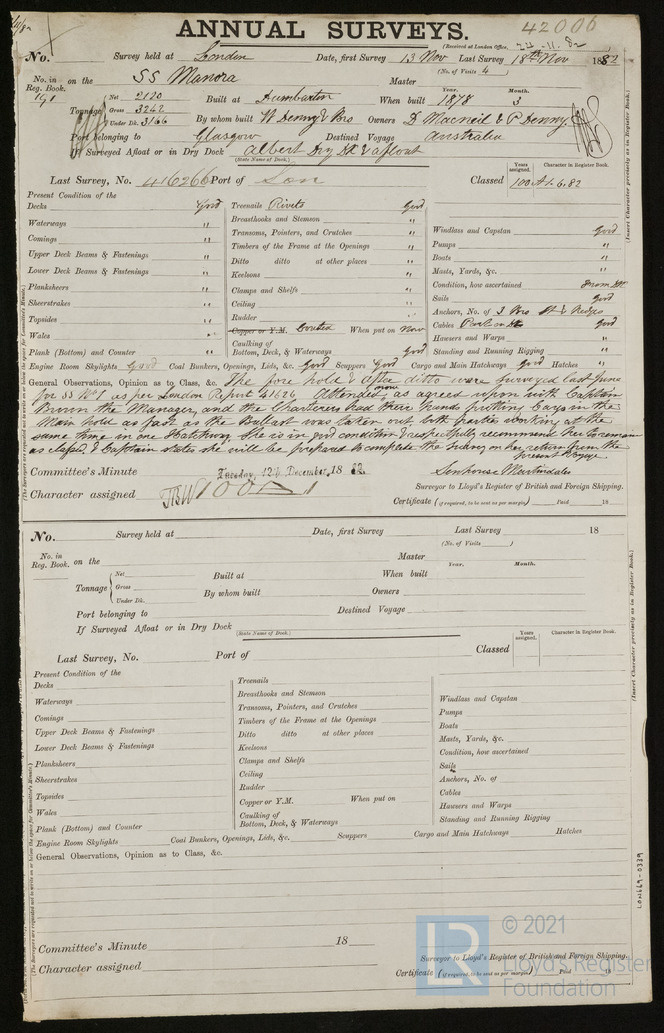 ANNUAL SURVEYS.
42006
(Received at London Office, 24.11.82)
No. Survey held at London Date, first Survey 13 Nov Last Survey 18th Nov 1882
(No. of Visits 4)
No. in Reg. Book. 191 on the SS Manora Master
Tonnage Net 2120 Gross 3242 Under Dk. 3166 Built at Dumbarton When built Year. 1878 Month. 3
By whom built W Denny & Bros Owners D Macneil & P Denny
Port belonging to Glasgow Destined Voyage Australia
If Surveyed Afloat or in Dry Dock Albert Dry Dk & afloat
(State Name of Dock.)
Last Survey, No. 41626 Port of Lon Classed Years assigned. 100 Character in Register Book. A1. 6.82
(Insert Character precisely as in Register Book.)
Present Condition of the
Decks Good
Waterways "
Comings "
Upper Deck Beams & Fastenings "
Lower Deck Beams & Fastenings "
Planksheers "
Sheerstrakes "
Topsides "
Wales "
Plank (Bottom) and Counter "
Treenails Rivets Good
Breasthooks and Stemson "
Transoms, Pointers, and Crutches "
Timbers of the Frame at the Openings "
Ditto ditto at other places "
Keelsons "
Clamps and Shelfs "
Ceiling "
Rudder "
Copper or Y.M. Coated When put on Now
Caulking of Bottom, Deck, & Waterways Good
Windlass and Capstan Good
Pumps "
Boats "
Masts, Yards, &c. "
Condition, how ascertained From Dk
Sails Good
Anchors, No. of 3 Bro St & Kedge
Cables Good
Hawsers and Warps "
Standing and Running Rigging "
Engine Room Skylights Good Coal Bunkers, Openings, Lids, &c. Good Scuppers Good Cargo and Main Hatchways Good Hatches "
General Observations, Opinion as to Class, &c. The fore hold & after ditto were surveyed last June
for SS No 1 as per London Report 41626. Attended now as agreed upon with Captain
Brown the Manager, and the Charterers had their hands putting Cargo in the
Main hold as fast as the Ballast was taken out, both parties working at the
same time in one Hatchway. She is in good condition & respectfully recommend her to remain
as classed & Captain states she will be prepared to complete the Survey on her return from the
present voyage.
Committee's Minute Tuesday, 12th December, 1882
Senhouse Martindale
Surveyor to Lloyd's Register of British and Foreign Shipping.
Character assigned 100 A 1
Certificate (if required, to be sent as per margin) Paid 18
(The Surveyors are requested not to write on or below the space for Committee's Minute.)
No. Survey held at Date, first Survey Last Survey 18
(No. of Visits )
No. in Reg. Book. on the Master
Tonnage Net Gross Under Dk. Built at When built Year. Month.
By whom built Owners
Port belonging to Destined Voyage
If Surveyed Afloat or in Dry Dock
(State Name of Dock.)
Last Survey, No. Port of Classed Years assigned. Character in Register Book.
(Insert Character precisely as in Register Book.)
Present Condition of the
Decks
Waterways
Comings
Upper Deck Beams & Fastenings
Lower Deck Beams & Fastenings
Planksheers
Sheerstrakes
Topsides
Wales
Plank (Bottom) and Counter
Treenails
Breasthooks and Stemson
Transoms, Pointers, and Crutches
Timbers of the Frame at the Openings
Ditto ditto at other places
Keelsons
Clamps and Shelfs
Ceiling
Rudder
Copper or Y.M. When put on
Caulking of Bottom, Deck, & Waterways
Windlass and Capstan
Pumps
Boats
Masts, Yards, &c.
Condition, how ascertained
Sails
Anchors, No. of
Cables
Hawsers and Warps
Standing and Running Rigging
Engine Room Skylights Coal Bunkers, Openings, Lids, &c. Scuppers Cargo and Main Hatchways Hatches
General Observations, Opinion as to Class, &c.
(The Surveyors are requested not to write on or below the space for Committee's Minute.)
LON669-0339
Committee's Minute 18
Surveyor to Lloyd's Register of British and Foreign Shipping.
Character assigned
Certificate (if required, to be sent as per margin) Paid 18
LR
© 2021
Lloyd's Register
Foundation